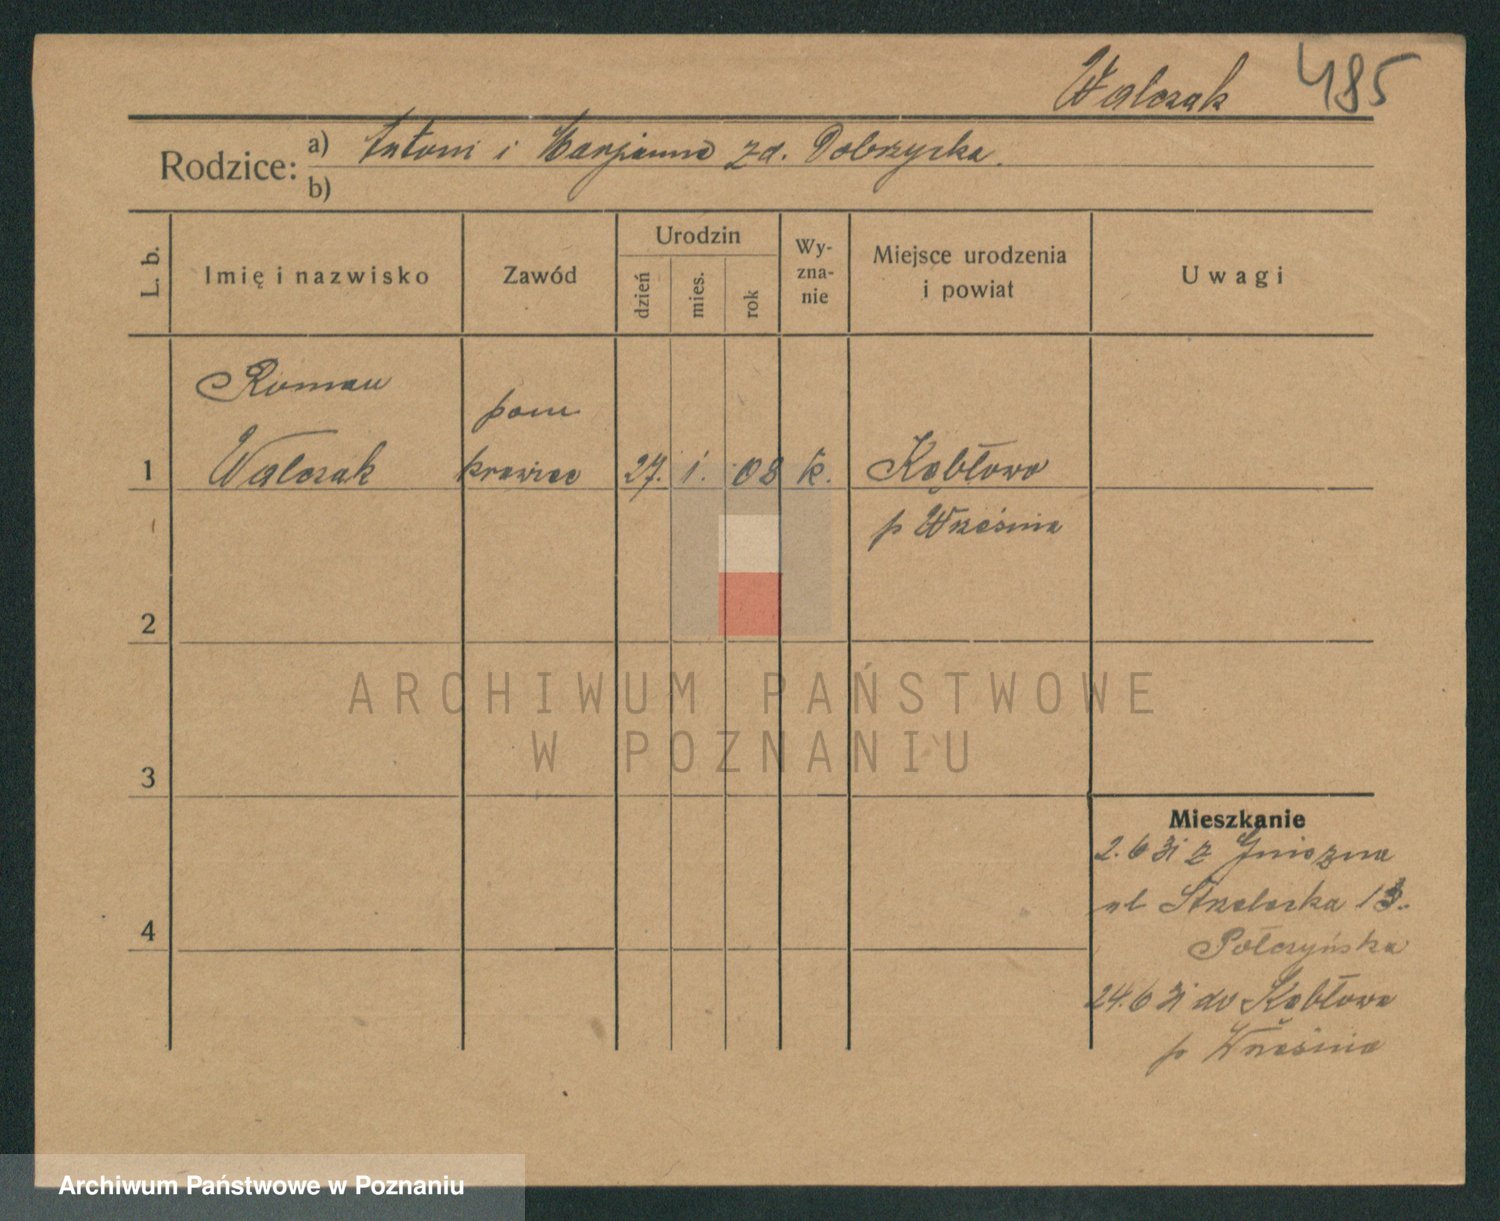 Walczak 485
Rodzice: a) Antoni i Marjanna zd. Dobrzycka.
b)
L. b. Imię i nazwisko Zawód Urodzin dzień mies. rok Wy-zna-nie Miejsce urodzenia i powiat Uwagi
Roman
pom
1 Walczak krawiec 27. 1. 08 k. Kębłowo
p Września
2
ARCHIWUM PAŃSTWOWE
W POZNANIU
3
Mieszkanie
2.6 31 z Gniezna
ul Strzelecka 13.
4 Połczyńska
24.6 31 do Kębłowo
p Września
Archiwum Państwowe w Poznaniu